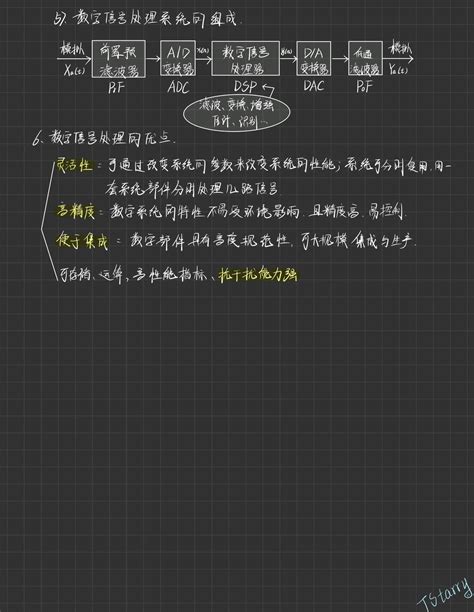 5). 数字信号处理系统的组成.
模拟 前置预滤波器 A/D变换器 x(n) 数字信号处理器 y(n) D/A变换器 低通滤波器 模拟
Xa(t) PrF ADC DSP DAC PoF Ya(t)
滤波、变换、增强
估计、识别...
6. 数字信号处理的优点.
灵活性: 可通过改变系统的参数来改变系统的性能; 系统可分时使用, 用一
套系统部件分别处理几路信号.
高精度: 数字系统的特性不易受环境影响, 且精度高, 易控制.
便于集成: 数字部件具有高度规范性, 可大规模集成与生产.
可存储、运算, 高性能指标、抗干扰能力强
TStarry